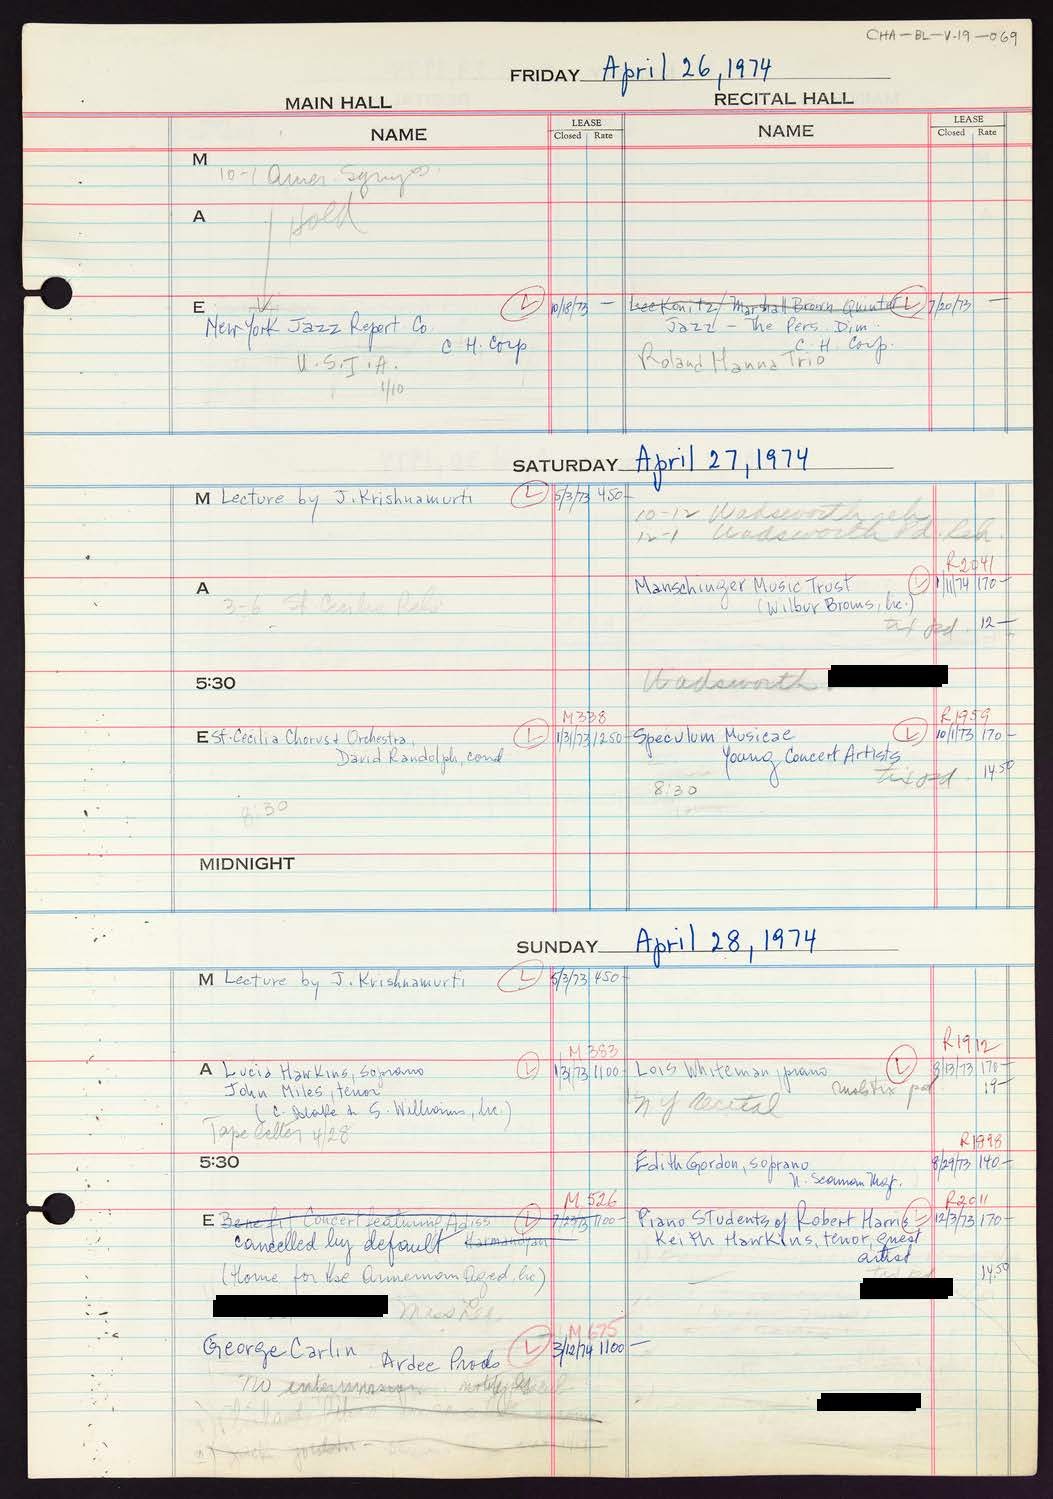 CHA-BL-V-19-069
FRIDAY April 26, 1974
MAIN HALL RECITAL HALL
NAME LEASE Closed Rate NAME LEASE Closed Rate
M
10-1 Amer. Symp
A
Hold
E
New York Jazz Report Co. L 10/18/73 —
C. H. Corp
U.S.I.A.
1/10
Lee Konitz/Marshall Brown Quintet L 7/20/73 —
Jazz - The Pers. Dim.
C. H. Corp.
Roland Hanna Trio
SATURDAY April 27, 1974
M Lecture by J. Krishnamurti L 5/3/73 450-
10-12 Wadsworth reh
12-1 Wadsworth Pd. Reh.
A
3-6 St Cecilia Reh
R2041
Manschinger Music Trust L 1/11/74 170-
(Wilbur Broms, Inc.)
tix pd. 12-
5:30
Wadsworth
M338
E St. Cecilia Chorus + Orchestra, L 1/31/73 1250-
David Randolph, cond
8:30
R1959
Speculum Musicae L 10/1/73 170-
Young Concert Artists
tix pd. 14.50
8:30
MIDNIGHT
SUNDAY April 28, 1974
M Lecture by J. Krishnamurti L 5/3/73 450-
M383
A Lucia Hawkins, soprano L 1/3/73 1100
John Miles, tenor
(C. Blake & S. Williams, Inc.)
Tape letter 4/28
R1912
Lois Whiteman, piano L 8/13/73 170-
pd 19-
NY recital
5:30
R1898
Edith Gordon, soprano 8/29/73 140-
N. Seaman Mgt.
M526
E Benefit Concert featuring Adiss L 1100-
cancelled by default Karmandyan
(Home for the Armenian Aged, Inc)
R2011
Piano Students of Robert Harris L 12/3/73 170-
Keith Hawkins, tenor, guest
artist
14.50
M675
George Carlin L 3/12/74 1100-
Ardee Prods
No